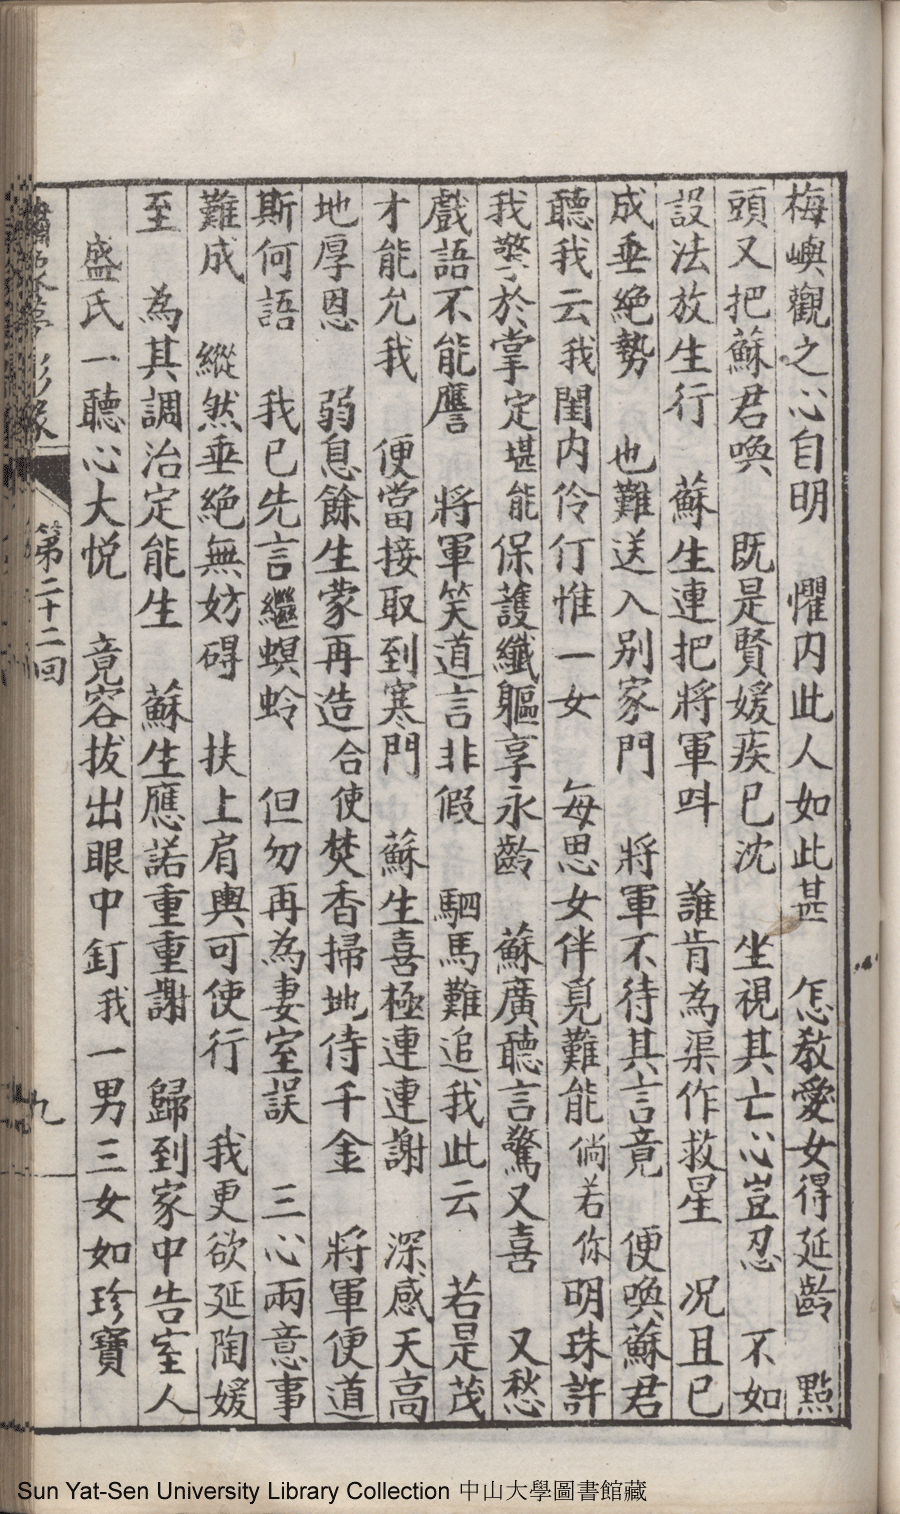 梅嶼觀之心自明　懼内此人如此甚　怎教愛女得延齡　點
頭又把蘇君喚　既是賢媛疾已沈　坐視其亡心豈忍　不如
設法放生行　蘇生連把將軍呌　誰肯為渠作救星　况且已
成垂絕勢　也難送入别家門　將軍不待其言竟　便喚蘇君
聽我云　我閨内伶仃惟一女　每思女伴覓難能　倘若你明珠許
我擎於掌　定堪能保護纖軀享永齡　蘇廣聽言驚又喜　又愁
戲語不能譍　將軍笑道言非假　駟馬難追我此云　若是茂
才能允我　便當接取到寒門　蘇生喜極連連謝　深感天高
地厚恩　弱息餘生蒙再造　合使焚香掃地侍千金　將軍便道
斯何語　我已先言繼螟蛉　但勿再為妻室誤　三心兩意事
難成　縱然垂絕無妨碍　扶上肩輿可使行　我更欲延陶媛
至　為其調治定能生　蘇生應諾重重謝　歸到家中告室人
盛氏一聽心大悅　竟容拔出眼中釘　我一男三女如珍寶
第二十二回
九
Sun Yat-Sen University Library Collection 中山大學圖書館藏